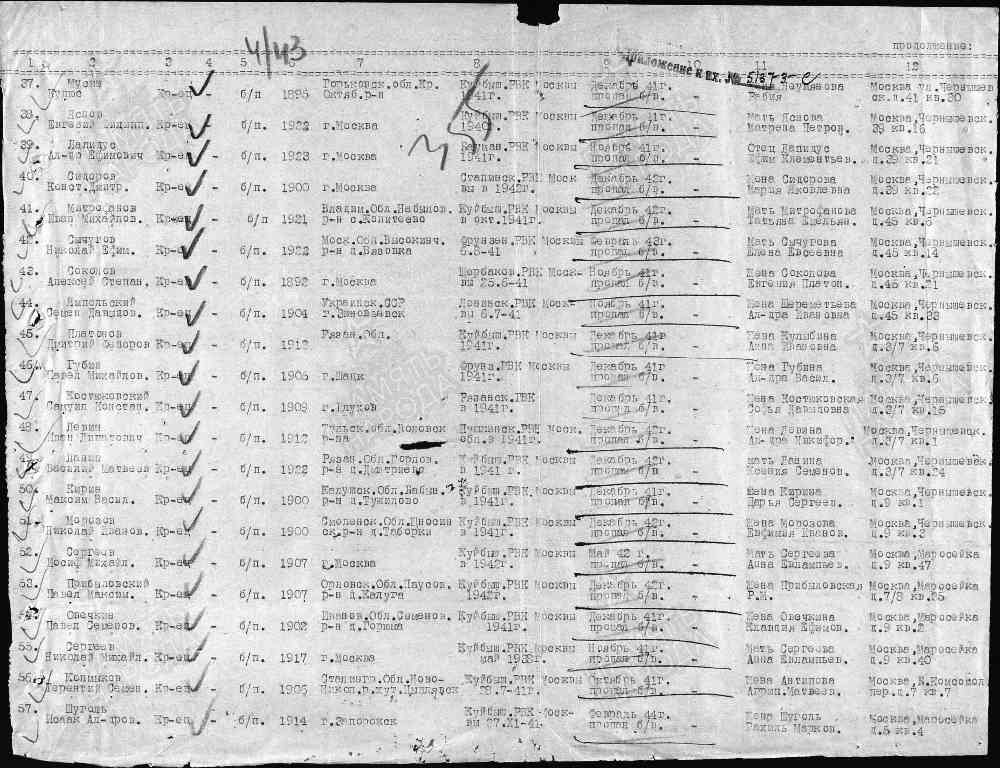 4/43
продолжение:
Приложение к вх. № 51373-с
1. 2 3 4 5 6 7 8 9 10 11 12
37. Мусин Горьковск.обл.Кр. Куйбыш.РВК Москвы Декабрь 41г. Москва ул.Чернышев
Юнюс Кр-ец - б/п 1895 Октяб.р-н 1941г. пропал б/в. - Рабия ск.д.41 кв.30
38. Яснов Куйбыш.РВК Москвы Декабрь 41г. Мать Яснова Москва,Чернышевск.
Евгений Филипп. Кр-ец - б/п. 1922 г.Москва 1940г. пропал б/в. - Матрена Петров. 39 кв.16
39. Лапидус Бауман.РВК Москвы Ноябрь 41г. Отец Лапидус Москва,Чернышевск.
Ал-др Ефимович Кр-ец - б/п. 1923 г.Москва 1941г. пропал б/в. - Ефим Клементьев. д.39 кв.21
40. Сидоров Сталинск.РВК Моск Декабрь 42г. Жена Сидорова Москва,Чернышевск.
Конст.Дмитр. Кр-ец - б/п. 1900 г.Москва вы в 1942г. пропал б/в. - Мария Яковлевна д.39 кв.22
41. Митрофанов Владим.Обл.Небылов. Куйбыш.РВК Москвы Декабрь 42г. Мать Митрофанова Москва,Чернышевск.
Иван Михайлов. Кр-ец - б/п 1921 р-н с.Копитеево в окт.1941г. пропал б/в. - Татьяна Емельян. д.45 кв.6
42. Сычугов Моск.Обл.Высокинч. Фрунзен.РВК Москвы Февраль 43г. Мать Сычугова Москва,Чернышевск.
Николай Ефим. Кр-ец - б/п. 1922 р-н д.Вязовка 6.8-41 пропал б/в. - Елена Евсеевна д.45 кв.14
43. Соколов Щербаков.РВК Моск- Ноябрь 41г Жена Соколова Москва,Чернышевск.
Алексей Степан. Кр-ец - б/п. 1892 г.Москва вы 25.8-41 пропал б/в. - Евгения Платон. д.45 кв.21
44. Ямпольский Украинск.ССР Ленинск.РВК Моск- Ноябрь 41г Жена Шереметьева Москва,Чернышевск.
Семен Давыдов. Кр-ец - б/п. 1904 г.Зиновьевск вы 6.7-41 пропал б/в. - Ал-дра Ивановна д.45 кв.33
45. Платонов Рязан.Обл. Куйбыш.РВК Москвы Декабрь 41г Жена Кулыбина Москва,Чернышевск.
Дмитрий Федоров Кр-ец - б/п. 1912 1941г. пропал б/в. - Анна Ивановна д.3/7 кв.5
46. Губин Фрунз.РВК Москвы Декабрь 41г Жена Губина Москва,Чернышевск.
Павел Михайлов. Кр-ец - б/п. 1906 г.Шацк 1941г. пропал б/в. - Ал-дра Васил. д.3/7 кв.6
47. Костюковский Рязанск.РВК Декабрь 41г. Жена Костюковская Москва,Чернышевск.
Самуил Констан. Кр-ец - б/п. 1909 г.Глухов в 1941г. пропал б/в. - Софья Давыдовна д.3/7 кв.15
48. Левин Тульск.обл. Моск. Декабрь 42г. Жена Левина Москва,Чернышевск.
Иван Кр-ец - б/п. 1912 р-на обл.в 1941г. пропал б/в. - Ал-дра Никифор. д.3/7 кв.1
49. Рязан.Обл.Горлов. Куйбыш.РВК Москвы Декабрь 42г мать Москва,Чернышевск.
Василий Матвеев Кр-ец - б/п. 1922 р-н д.Дмитриево в 1941 г. пропал б/в. - Ксения Семенов. д.3/7 кв.24
50. Кирин Калужск.Обл.Бабын. Куйбыш.РВК Москвы Декабрь 41г. Жена Кирина Москва,Чернышевск.
Максим Васил. Кр-ец - б/п. 1900 р-н д.Тумилово в 1941г. пропал б/в. - Дарья Сергеев. д.9 кв.1
51. Морозов Смоленск.Обл. Куйбыш.РВК Москвы Декабрь 42г. Жена Морозова Москва,Чернышевск.
Николай Иванов. Кр-ец - б/п. 1900 ск.р-н д.Таборки в 1941г. пропал б/в. - Евфимия Иванов. д.9 кв.3
52. Сергеев Куйбыш.РВК Москвы Май 42 г. Мать Сергеева Москва,Маросейка
Иосиф Михайл. Кр-ец - б/п. 1907 г.Москва в 1942г. пропал б/в. - Анна Евлампьев. д.9 кв.47
53. Прибыловский Орловск.Обл. Куйбыш.РВК Москвы Декабрь 42г. Жена Прибыловская Москва,Маросейка
Павел Максим. Кр-ец - б/п. 1907 р-н д.Калуга 1942г. пропал б/в. - Р.М. д.7/8 кв.25
54. Овечкин Иванов.Обл.Семенов. Куйбыш.РВК Москвы Декабрь 41г Жена Овечкина Москва,Маросейка
Павел Семенов. Кр-ец - б/п. 1902 р-н 1941г. пропал б/в. - Клавдия Ефимов. д.9 кв.2
55. Сергеев Куйбыш.РВК Москвы Ноябрь 41г. Мать Сергеева Москва,Маросейка
Николай Михайл. Кр-ец - б/п. 1917 г.Москва май 1938г. пропал б/в. - Анна Евлампьев. д.9 кв.40
56. Колпиков Сталингр.Обл.Ново- Куйбыш.РВК Москвы Октябрь 41г. Жена Антипова Москва,Б.Комсомол.
Терентий Семен. Кр-ец - б/п. 1906 28.7-41г. пропал б/в. - Агрип.Матвеев. пер.д.7 кв.7
57. Шуголь Куйбыш.РВК Моск- Февраль 44г. Жена Шуголь Москва,Маросейка
Исаак Ал-дров. Кр-ец - б/п. 1914 г.Запорожск вы 27.XI-41 пропал б/в. - Рахиль Марков. д.5 кв.4